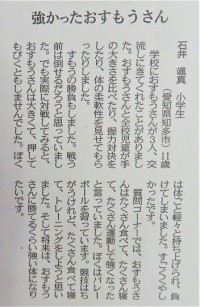 強かったおすもうさん
石井 颯真 小学生
(愛知県知多市) 11歳
学校におすもうさんが3人、交
流しにきてくれたことがありまし
た。おすもうさんと全校児童が手
の大きさを比べたり、握力対決を
したり、体の柔軟性を見せてもら
ったりしました。
すもうの勝負もしました。戦う
前は倒せるだろうと思っていまし
た。でも実際に対戦してみると、
おすもうさんは大きくて、押して
もびくともしませんでした。ぼく
は体ごと軽々と持ち上げられ、負
けてしまいました。すごくくやし
かったです。
質問コーナーでは、おすもうさ
んはたくさん食べて、たくさん寝
て強くなった
と言っていました。ぼくはバレー
ボールを習っています。競技はち
がうけれど、たくさん食べて寝
て、トレーニングをしようと思い
ました。そして将来は、おすもう
さんに勝てるぐらい強い体になり
たいです。